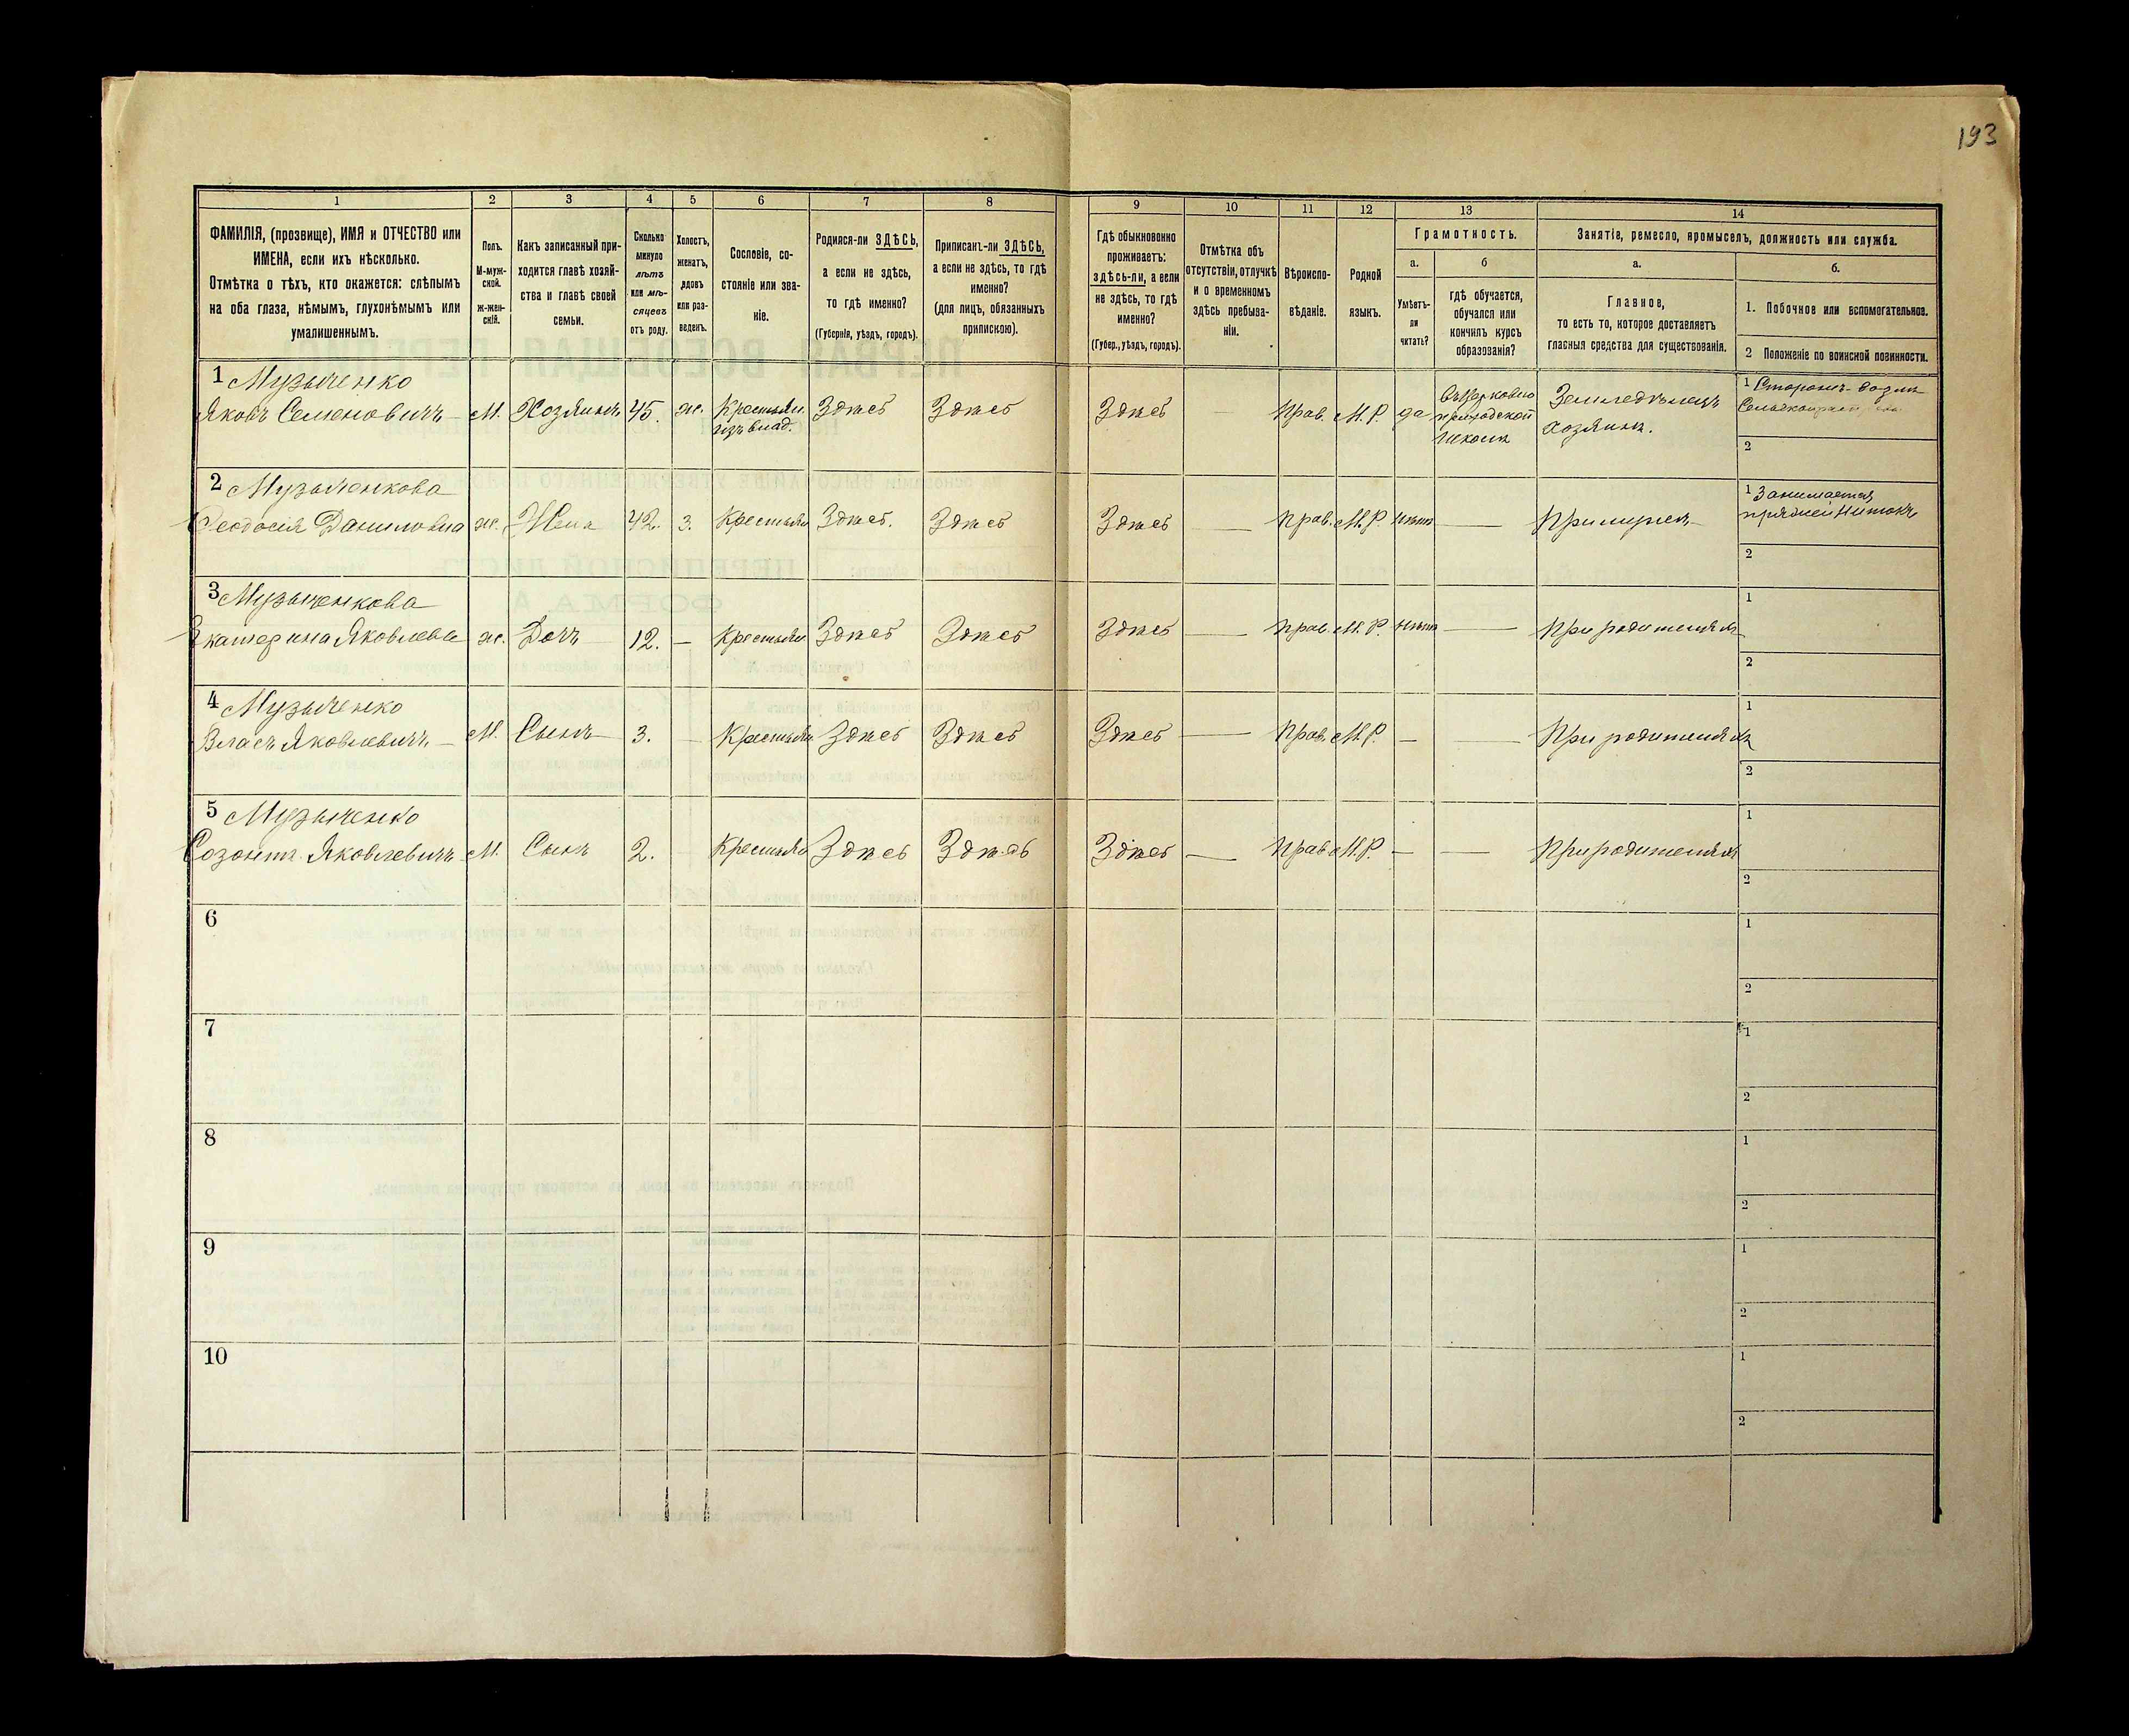 193
1 2 3 4 5 6 7 8 9 10 11 12 13 14
ФАМИЛІЯ, (прозвище), ИМЯ и ОТЧЕСТВО или
ИМЕНА, если ихъ нѣсколько.
Отмѣтка о тѣхъ, кто окажется: слѣпымъ
на оба глаза, нѣмымъ, глухонѣмымъ или
умалишеннымъ.
Полъ.
М-муж-
ской.
ж-жен-
скій.
Какъ записанный при-
ходится главѣ хозяй-
ства и главѣ своей
семьи.
Сколько
минуло
лѣтъ
или мѣ-
сяцевъ
отъ роду.
Холостъ,
женатъ,
вдовъ
или раз-
веденъ.
Сословіе, со-
стояніе или зва-
ніе.
Родился-ли ЗДѢСЬ,
а если не здѣсь,
то гдѣ именно?
(Губернія, уѣздъ, городъ).
Приписанъ-ли ЗДѢСЬ,
а если не здѣсь, то гдѣ
именно?
(для лицъ, обязанныхъ
припискою).
Гдѣ обыкновенно
проживаетъ:
здѣсь-ли, а если
не здѣсь, то гдѣ
именно?
(Губер., уѣздъ, городъ).
Отмѣтка объ
отсутствіи, отлучкѣ
и о временномъ
здѣсь пребыва-
ніи.
Вѣроиспо-
вѣданіе.
Родной
языкъ.
Грамотность.
а.
Умѣетъ-
ли
читать?
б
гдѣ обучается,
обучался или
кончилъ курсъ
образованія?
Занятіе, ремесло, промыселъ, должность или служба.
а.
Главное,
то есть то, которое доставляетъ
гласныя средства для существованія.
б.
1. Побочное или вспомогательное.
2 Положеніе по воинской повинности.
1 Музыченко
Яковъ Семеновичъ М. Хозяинъ 45. ж. Крестьян.
изъ влад.
Здѣсь Здѣсь Здѣсь — Прав. М.Р. да
приходской
школѣ
Земледѣлецъ
хозяинъ.
1
2
2 Музыченкова
Феодосія Даниловна ж. Жена 42. з. Крестьян Здѣсь. Здѣсь Здѣсь — Прав. М.Р. нѣтъ — При мужѣ
1 Занимается
пряжей нитокъ
2
3 Музыченкова
Екатерина Яковлева ж. Дочь 12. — Крестьян Здѣсь Здѣсь Здѣсь — Прав. М.Р. нѣтъ — При родителяхъ
1
2
4 Музыченко
Власъ Яковлевичъ — М. Сынъ 3. — Крестьян Здѣсь Здѣсь Здѣсь — Прав. М.Р. — — При родителяхъ
1
2
5 Музыченко
Созонтъ Яковлевичъ М. Сынъ 2. Крестьян Здѣсь Здѣсь Здѣсь — Прав М.Р. — — При родителяхъ
1
2
6
1
2
7
1
2
8
1
2
9
1
2
10
1
2